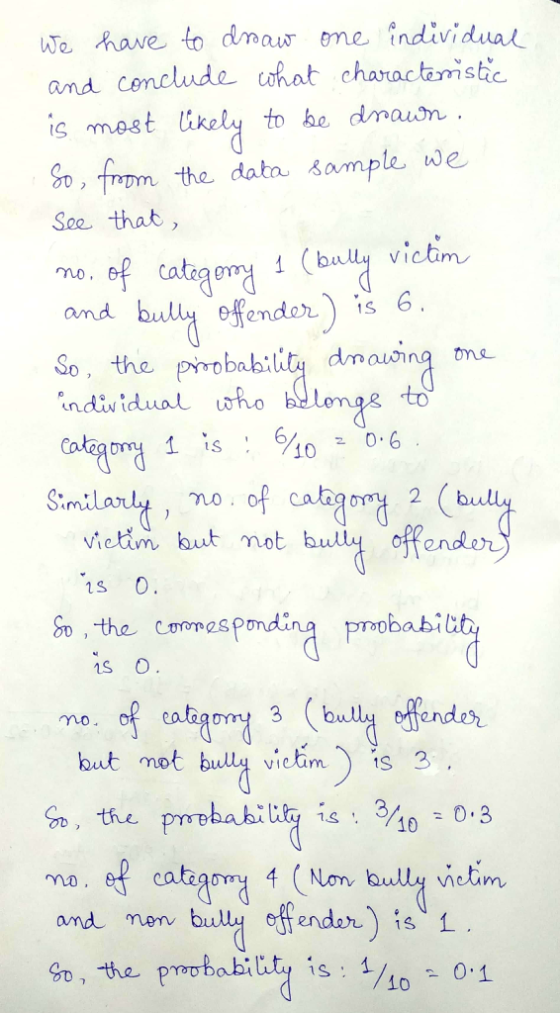 We have to draw one individual
and conclude what characteristic
is most likely to be drawn.
So, from the data sample we
See that,
no. of category 1 (bully victim
and bully offender) is 6.
So, the probability drawing one
individual who belongs to
category 1 is : 6/10 = 0.6.
Similarly, no. of category 2 (bully
victim but not bully offender)
is 0.
So, the corresponding probability
is 0.
no. of category 3 (bully offender
but not bully victim) is 3.
So, the probability is : 3/10 = 0.3
no. of category 4 (Non bully victim
and non bully offender) is 1.
So, the probability is : 1/10 = 0.1